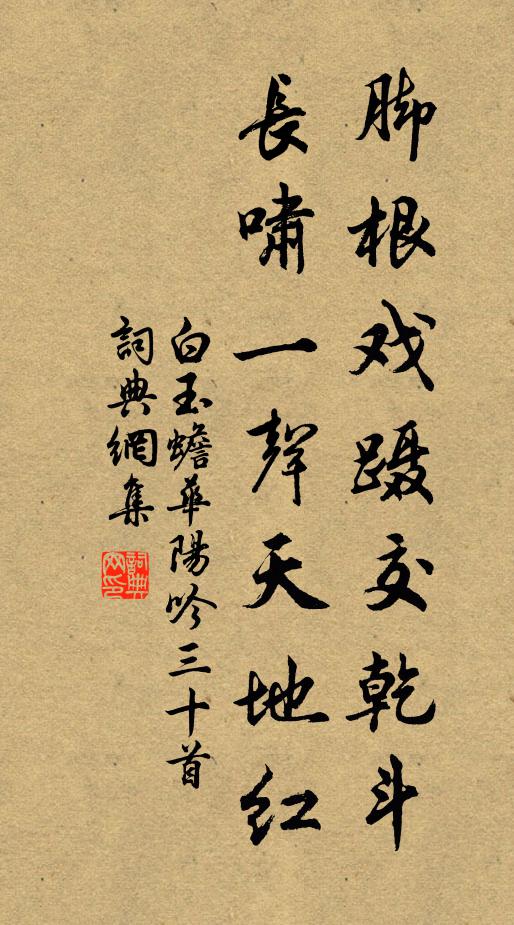 脚根戏蹑交乾斗
長嘯一聲天地红
白玉蟾華陽吟三十首
詞典網集
詞典網印